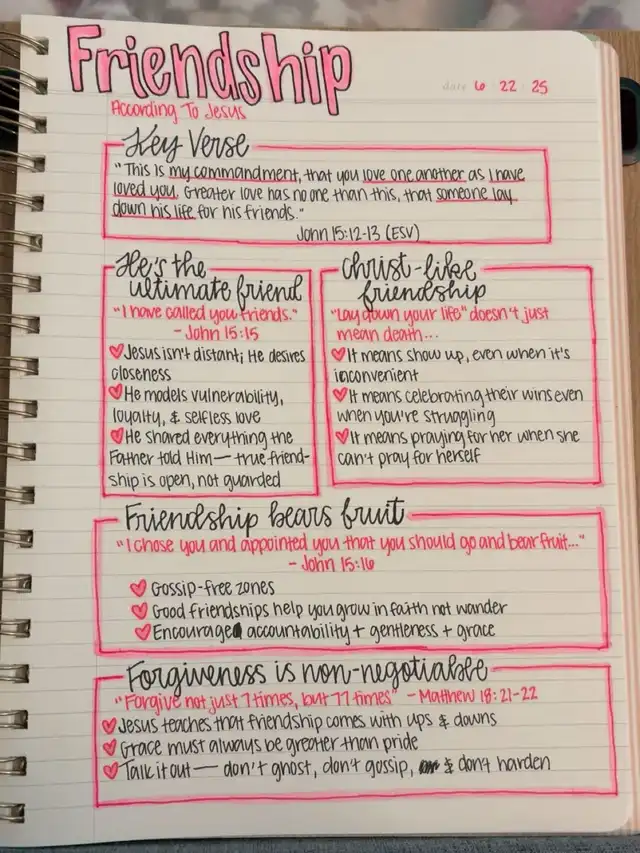 Friendship
date 6 22 25
According To Jesus
Key Verse
"This is my commandment, that you love one another as I have
loved you. Greater love has no one than this, that someone lay
down his life for his friends."
John 15:12-13 (ESV)
He's the
ultimate friend
"I have called you friends."
- John 15:15
Jesus isn't distant; He desires
closeness
He models vulnerability,
loyalty, & selfless love
He shared everything the
Father told Him— true friend-
ship is open, not guarded
Christ-like
friendship
"Lay down your life" doesn't just
mean death...
It means show up, even when it's
inconvenient
It means celebrating their wins even
when you're struggling
It means praying for her when she
can't pray for herself
Friendship bears fruit
"I chose you and appointed you that you should go and bear fruit..."
- John 15:16
Gossip-free zones
Good friendships help you grow in faith not wander
Encourage accountability + gentleness + grace
Forgiveness is non-negotiable
"Forgive not just 7 times, but 77 times" - Matthew 18:21-22
Jesus teaches that friendship comes with ups & downs
Grace must always be greater than pride
Talk it out— don't ghost, don't gossip, & don't harden